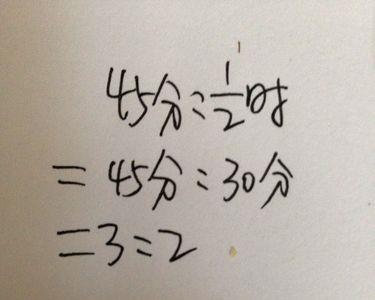 45分:1/2时
=45分:30分
=3:2